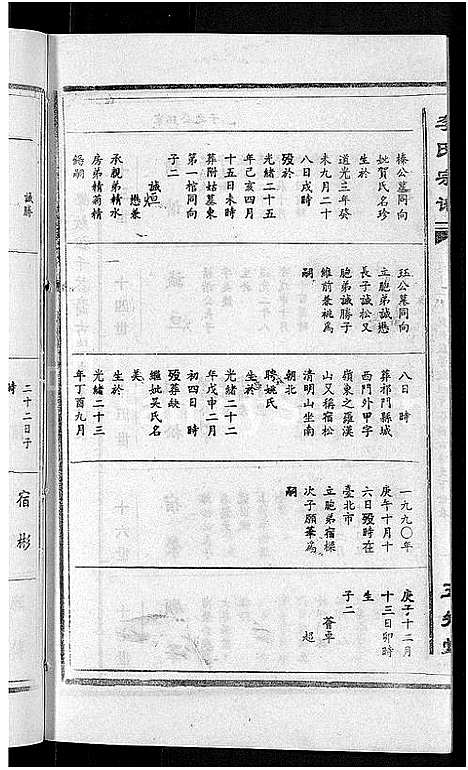 李氏宗譜
榛公墓同向
妣賀氏名珍
生於
道光三年癸
未九月二十
八日戌時
歿於
光緒二十五
年己亥四月
十五日未時
葬附姑墓東
第一棺同向
子二
誠烜
懋兼
承親弟精水
房弟精菊精
錫嗣
珏公墓同向
立胞弟誠懋
長子誠松又
胞弟誠勝子
維前兼祧爲
嗣
八日 時
葬祁門縣城
西門外甲字
嶺東之羅漢
山又稱宿松
清明山坐南
朝北
聘姚氏
生於
光緒二十二
年戊申二月
初四日 時
歿葬缺
繼妣吳氏名
美
生於
光緒二十三
年丁酉九月
一九九〇年
庚午十月十
六日歿時在
臺北市
立胞弟宿樑
次子願華爲
嗣
庚子十二月
十三日卯時
生
子二
薈平
超
誠勝
二十二日子
時
宿彬